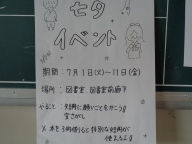 七夕
イベント
期間：7月1日(火)～11日(金)
場所：図書室、図書室前廊下
やること：短冊に願いごとをかこう!!
宝さがし
※ 本を3冊借りると特別な短冊が
使えるよ!!